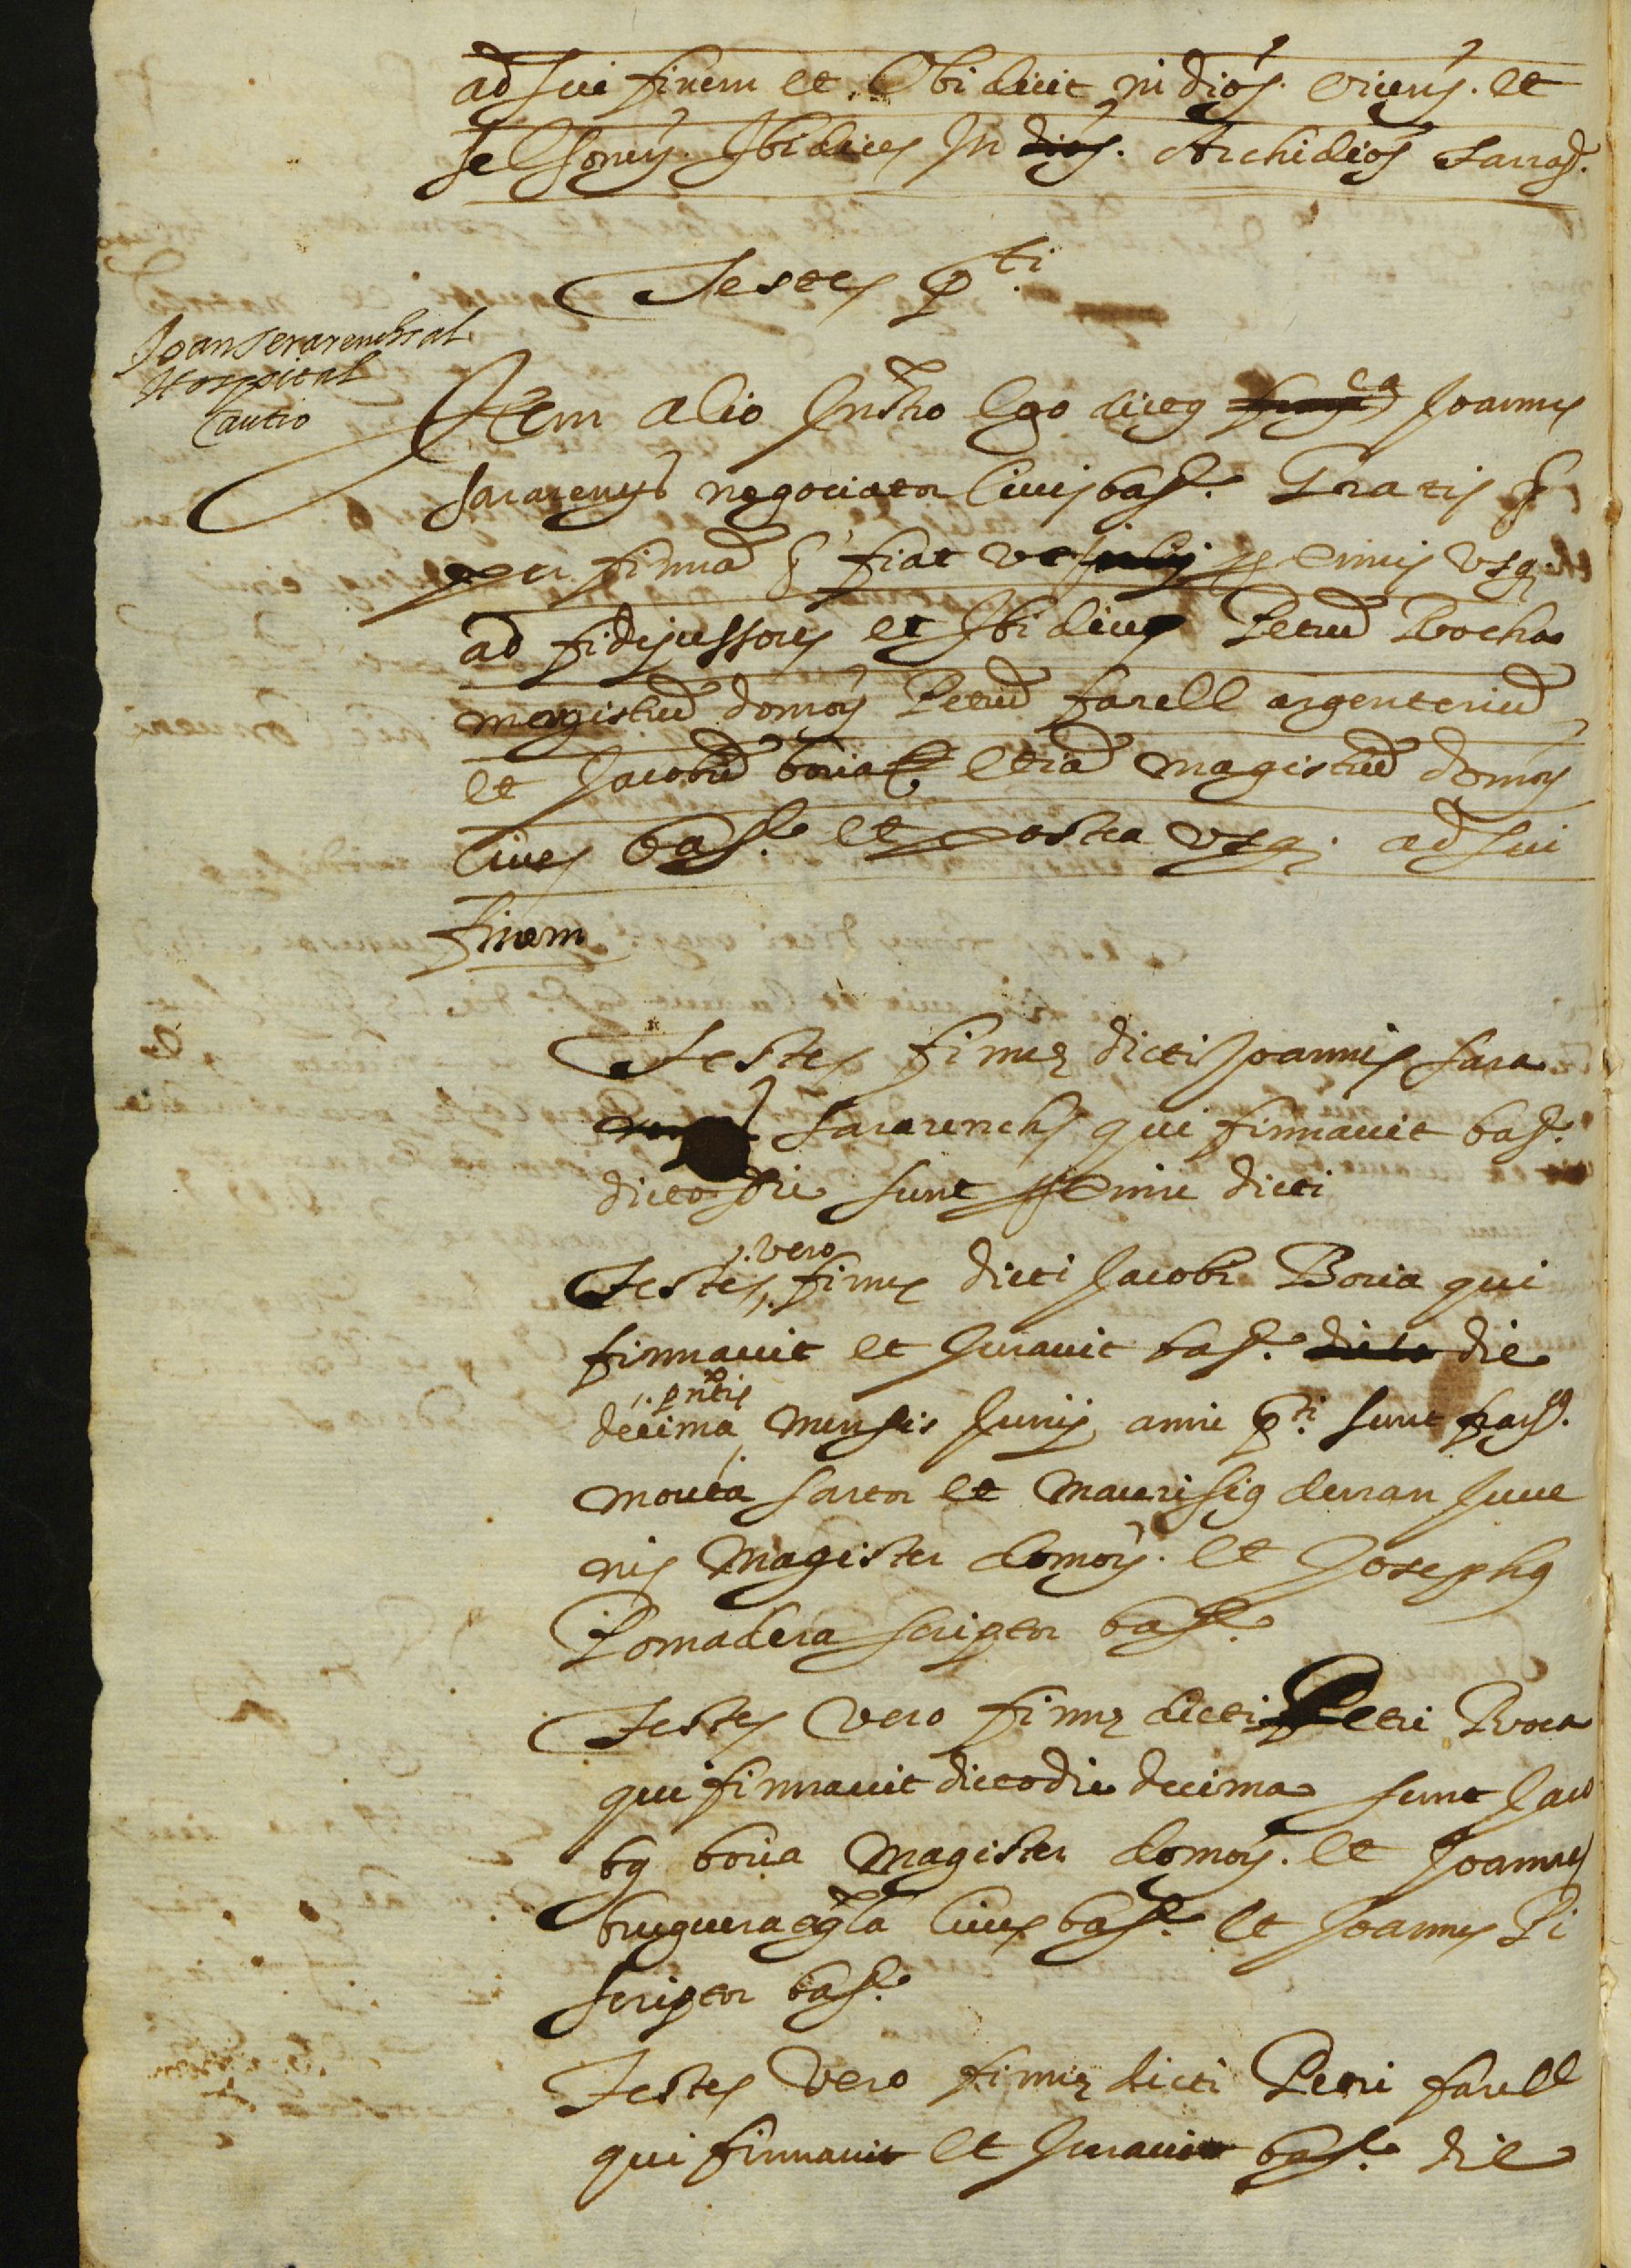 ad sui finem et Ubi dicit in dios. vicens. et
selsonens. Ibi dices In dios. Archidios Tarrag.
Testes p.ti
Joan serarenchs al
Hospital
cautio
Item alio Instro Ego dictus Joannes
sararenys negociator civis bar. Gratis &
per firmam & fiat ut primis usq.
ad fidejussores et Ibi dicens Petrum Rocha
magistrum domor. Petrum farell argenterium
et Jacobum boria etiam magistrum domor.
cives bar. et postea usq. ad sui
finem
Testes firmę dicti Joannis sara
sararenchs qui firmavit bar.
dicto die sunt proxime dicti
Testes, vero firmę dicti Jacobi Boria qui
firmavit et Juravit bar. dicto die
decima pntis mensis Junij anni p.ti sunt franc.
sartor et Maurisius duran Juve
nis Magister domor. et Josephus
Pomadera scriptor bar.
Testes vero firmę dicti Petri Roca
qui firmavit dicto die decima sunt Jaco
bus boria Magister domor. et Joannes
bruguera cives bar. et Joannes Pi
scriptor bar.
Testes vero firmę dicti Petri farell
qui firmavit et Juravit bar. die